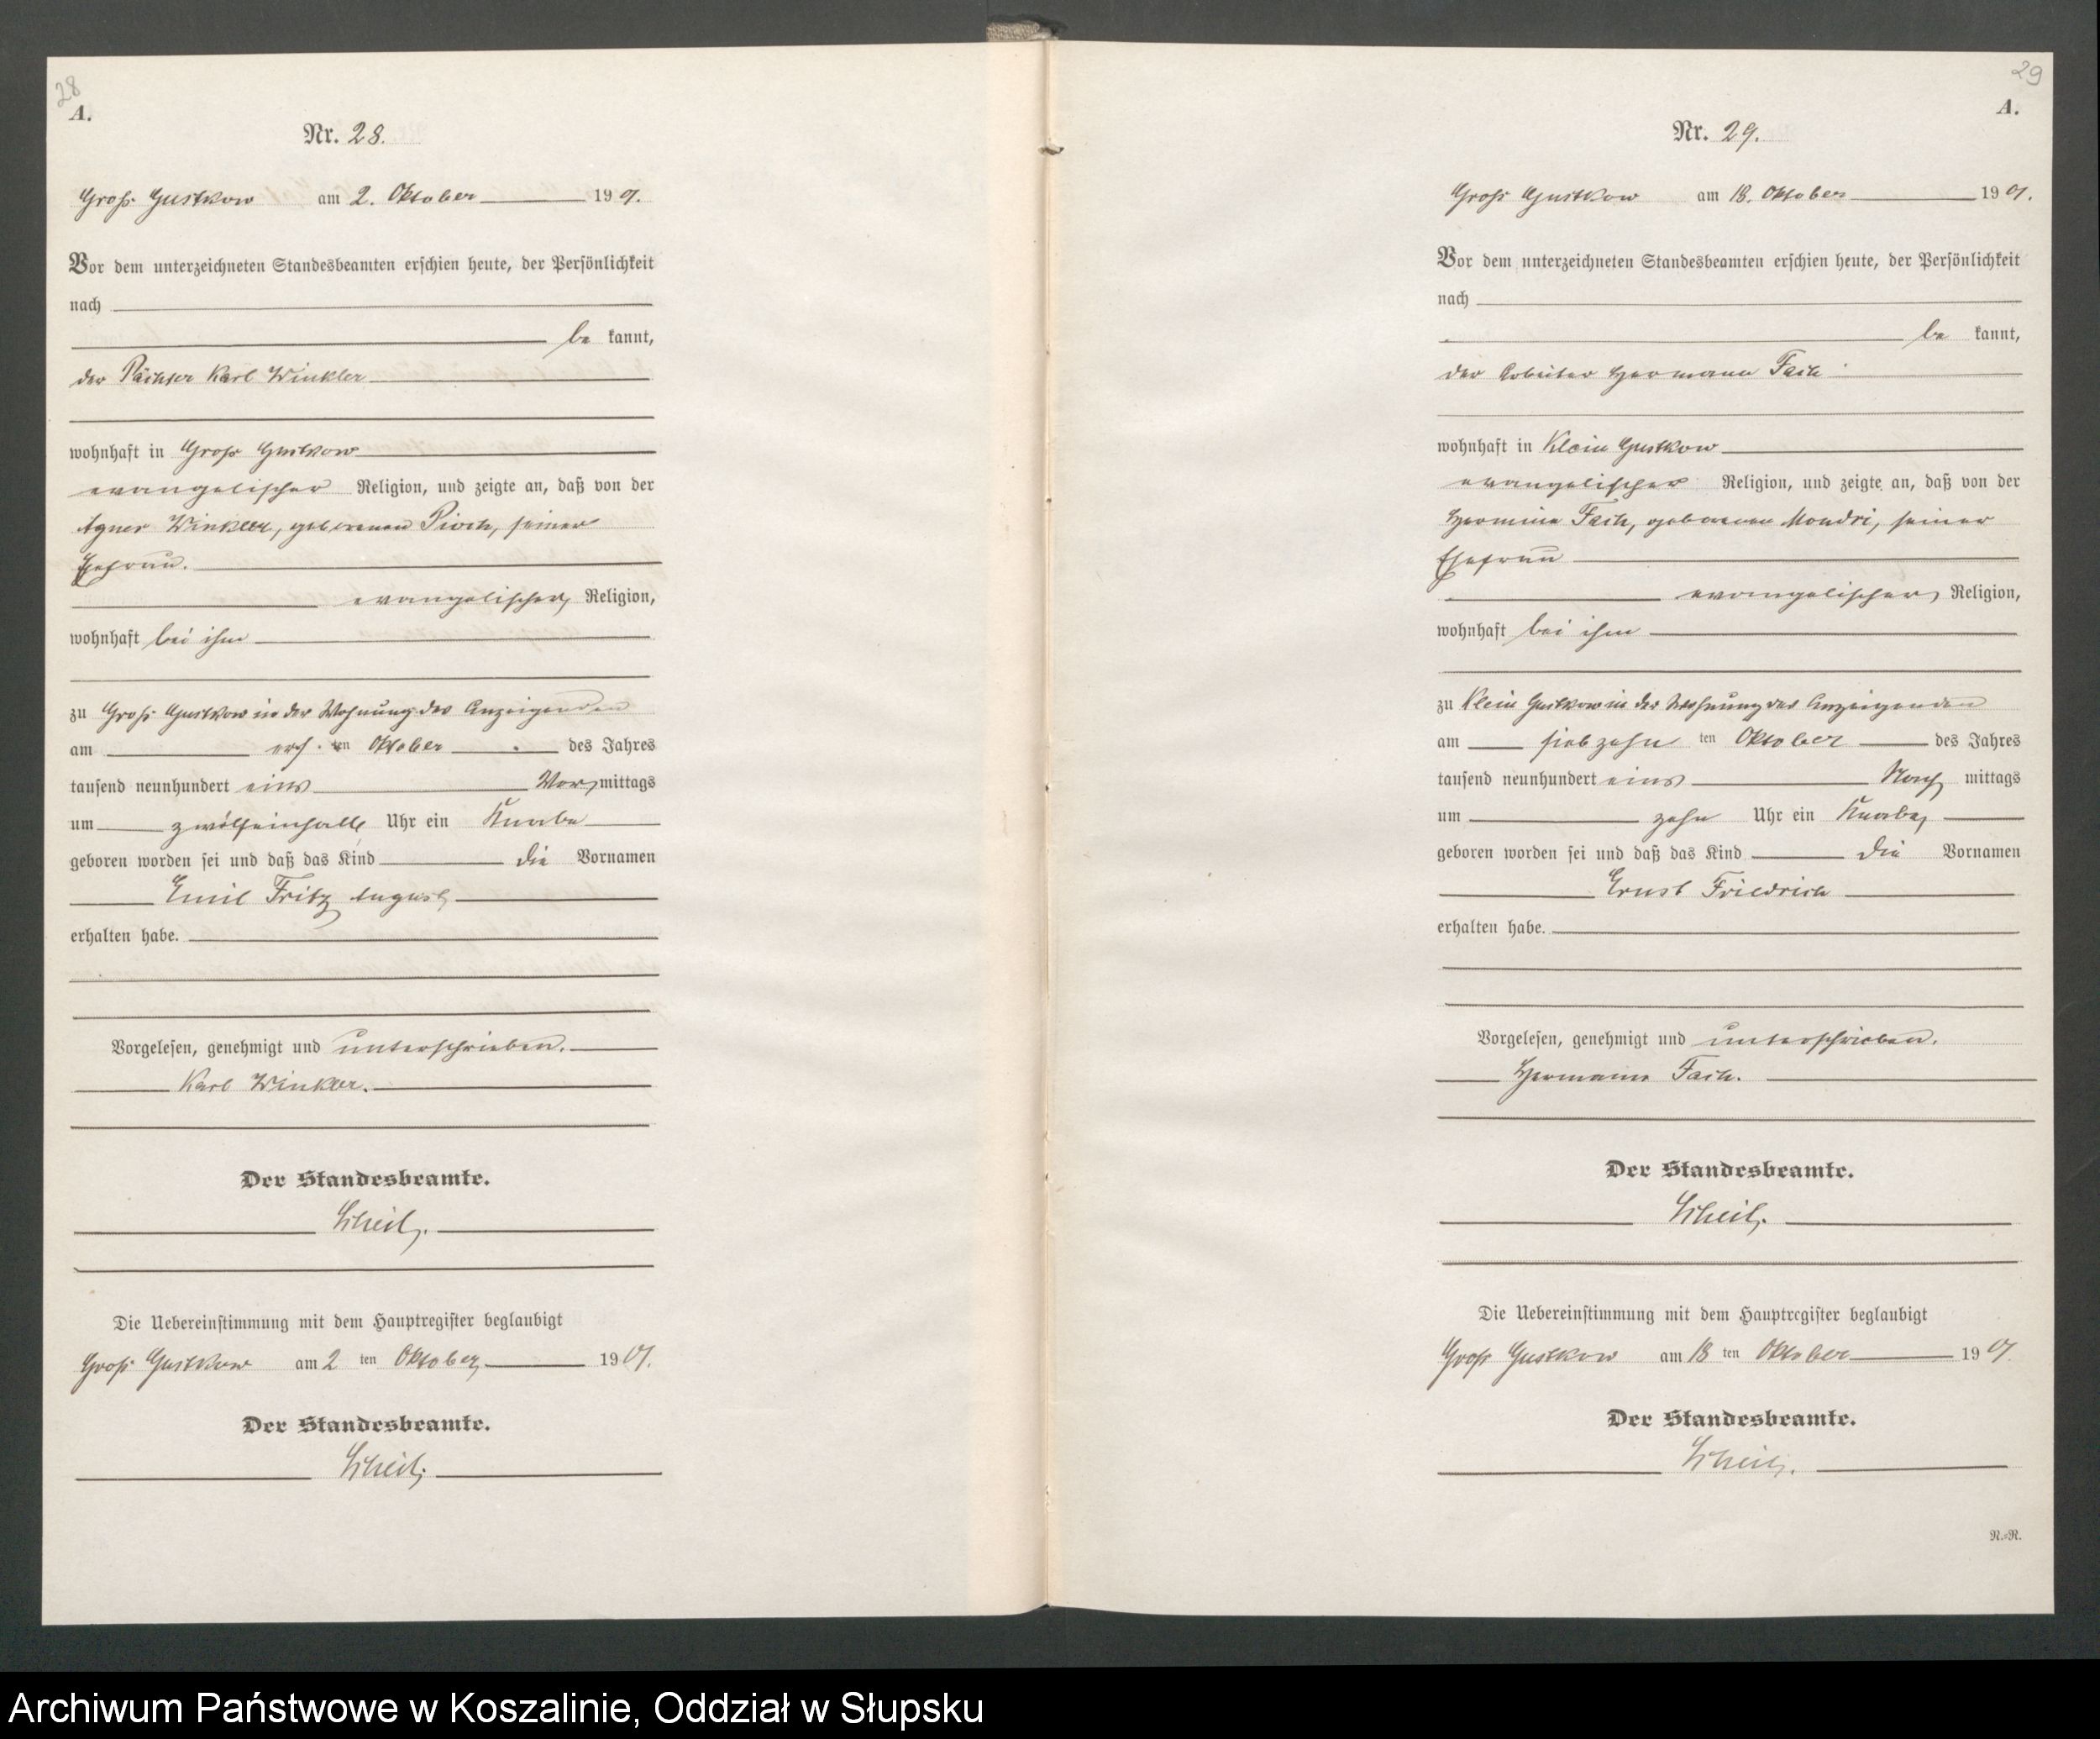 28
A.
Nr. 28.
Groß Gustkow am 2. Oktober 1901.
Vor dem unterzeichneten Standesbeamten erschien heute, der Persönlichkeit
nach
be kannt,
der Pächter Karl Winkler
wohnhaft in Groß Gustkow
evangelischer Religion, und zeigte an, daß von der
Agnes Winkler, geborenen Pioch, seiner
Ehefrau.
evangelischer Religion,
wohnhaft bei ihm
zu Groß Gustkow in der Wohnung des Anzeigenden
am ersten Oktober des Jahres
tausend neunhundert eins Vormittags
um zwölfeinhalb Uhr ein Knabe
geboren worden sei und daß das Kind die Vornamen
Emil Fritz August
erhalten habe.
Vorgelesen, genehmigt und unterschrieben.
Karl Winkler.
Der Standesbeamte.
Scheil.
Die Uebereinstimmung mit dem Hauptregister beglaubigt
Groß Gustkow am 2 ten Oktober 1901.
Der Standesbeamte.
Scheil.
29
A.
Nr. 29.
Groß Gustkow am 18. Oktober 1901.
Vor dem unterzeichneten Standesbeamten erschien heute, der Persönlichkeit
nach
be kannt,
der Arbeiter Hermann Fach
wohnhaft in Klein Gustkow
evangelischer Religion, und zeigte an, daß von der
Hermine Fach, geborenen Mondri, seiner
Ehefrau
evangelischer Religion,
wohnhaft bei ihm
zu Klein Gustkow in der Wohnung des Anzeigenden
am siebzehn ten Oktober des Jahres
tausend neunhundert eins Nach mittags
um zehn Uhr ein Knabe
geboren worden sei und daß das Kind die Vornamen
Ernst Friedrich
erhalten habe.
Vorgelesen, genehmigt und unterschrieben.
Hermann Fach.
Der Standesbeamte.
Scheil.
Die Uebereinstimmung mit dem Hauptregister beglaubigt
Groß Gustkow am 18 ten Oktober 1901.
Der Standesbeamte.
Scheil.
R.=R.
Archiwum Państwowe w Koszalinie, Oddział w Słupsku